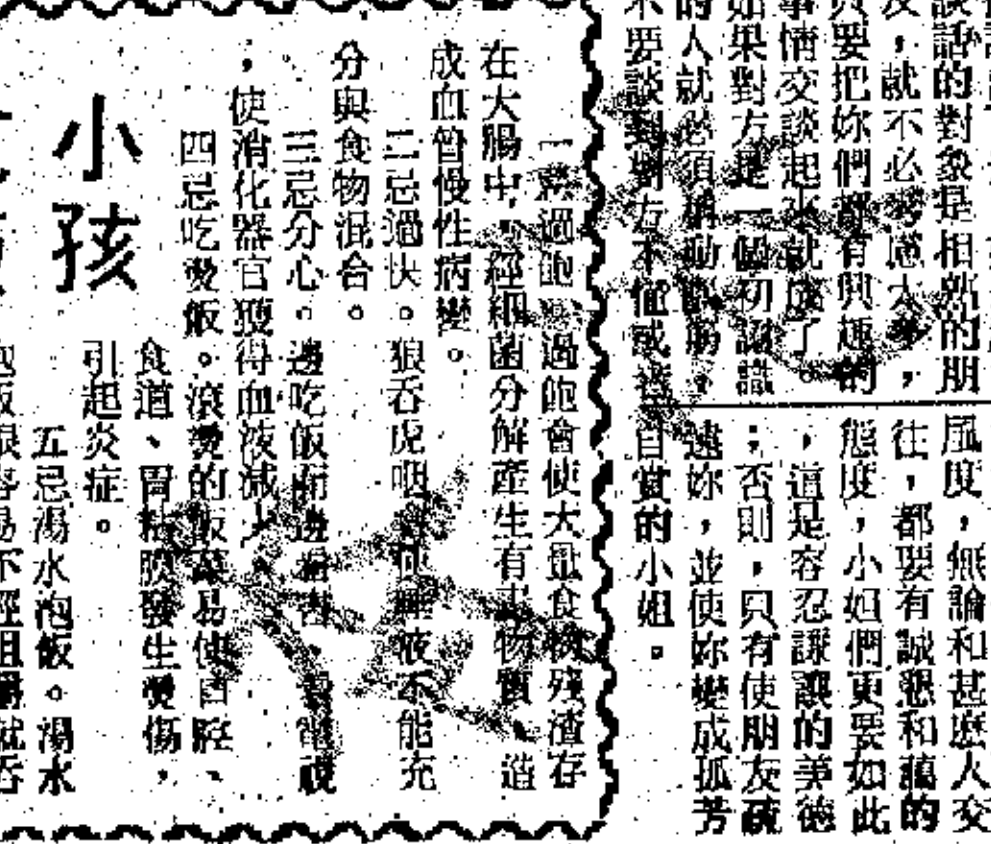 談話的對象是相熟的朋
友,就不必
只要把妳們都有興趣的
事情交談起來就
如果對方是一個初認識
的人就必須稍動腦筋,
不要談到對方不懂或
風度,無論和甚麽人交
往,都要有誠懇和藹的
態度,小姐們更要如此
,這是容忍謙讓的美德
;否則,只有使朋友疏
遠妳,並使妳變成孤芳
自賞的小姐。
一忌過飽。過飽會使大量食物殘渣存
在大腸中,經細菌分解產生有毒物質,造
成血管慢性病變。
二忌過快。狼吞虎咽會使唾液不能充
分與食物混合。
三忌分心。邊吃飯而邊看書、看電視
,使消化器官獲得血液減少
四忌吃燙飯。滾燙的飯菜易使口腔、
食道、胃粘膜發生燙傷,
引起炎症。
五忌湯水泡飯。湯水
泡飯很容易不經咀嚼就吞
小孩